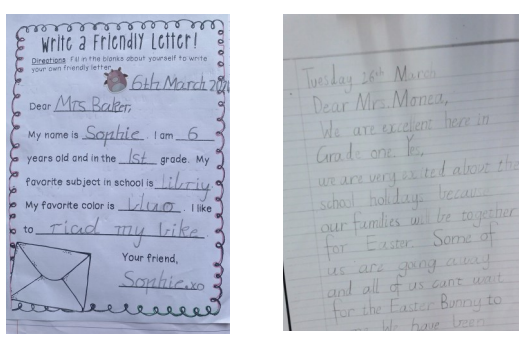 Write a Friendly Letter!
Directions: Fill in the blanks about yourself to write
your own friendly letter.
6th March
Dear Mrs Baker,
My name is Sophie. I am 6
years old and in the 1st grade. My
favorite subject in school is libriy
My favorite color is bluo. I like
to riad my bike.
Your friend,
Sophie.xo
Tuesday 16th March
Dear Mrs. Monea,
We are excellent here in
Grade one. Yes,
we are very excited about the
school holidays because
our families will be together
for Easter. Some of
us are going away
and all of us cant wait
for the Easter Bunny to
We have been